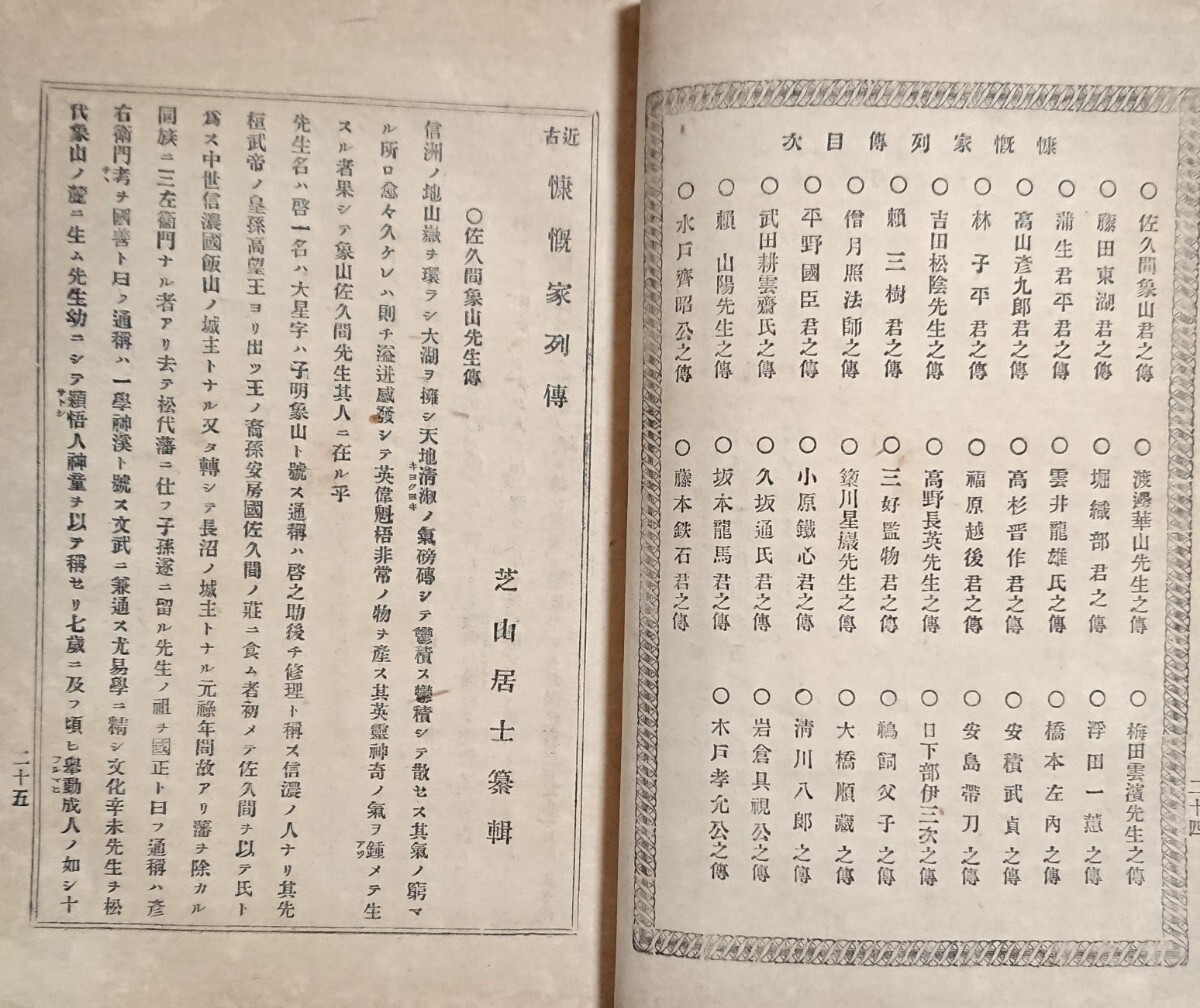 慷慨家列傳目次
○佐久間象山君之傳
○藤田東湖君之傳
○蒲生君平君之傳
○高山彥九郎君之傳
○林子平君之傳
○吉田松陰先生之傳
○賴三樹君之傳
○僧月照法師之傳
○平野國臣君之傳
○武田耕雲齋氏之傳
○賴山陽先生之傳
○水戶齊昭公之傳
○渡邊華山先生之傳
○堀織部君之傳
○雲井龍雄氏之傳
○高杉晋作君之傳
○福原越後君之傳
○高野長英先生之傳
○三好監物君之傳
○簗川星巖先生之傳
○小原鐵心君之傳
○久坂通氏君之傳
○坂本龍馬君之傳
○藤本鉄石君之傳
○梅田雲濱先生之傳
○浮田一蕙之傳
○橋本左內之傳
○安積武貞之傳
○安島帶刀之傳
○日下部伊三次之傳
○鵜飼父子之傳
○大橋順藏之傳
○淸川八郎之傳
○岩倉具視公之傳
○木戶孝允公之傳
二十四
近古慷慨家列傳
芝山居士纂輯
○佐久間象山先生傳
信洲ノ地山嶽ヲ環ラシ大湖ヲ擁シ天地淸淑ノ氣磅礴シテ鬱積ス鬱積シテ散セス其氣ノ窮マ
キヨクヨキ
ル所ロ愈々久ケレハ則チ溢迸感發シテ英偉魁梧非常ノ物ヲ產ス其英靈神奇ノ氣ヲ鍾メテ生
アツ
スル者果シテ象山佐久間先生其人ニ在ル乎
先生名ハ啓一名ハ大星字ハ子明象山ト號ス通稱ハ啓之助後チ修理ト稱ス信濃ノ人ナリ其先
桓武帝ノ皇孫高望王ヨリ出ツ王ノ裔孫安房國佐久間ノ莊ニ食ム者初メテ佐久間ヲ以テ氏ト
爲ス中世信濃國飯山ノ城主トナル又タ轉シテ長沼ノ城主トナル元祿年間故アリ藩ヲ除カル
同族ニ三左衞門ナル者アリ去テ松代藩ニ仕フ子孫遂ニ留ル先生ノ祖ヲ國正ト曰フ通稱ハ彥
右衞門考ヲ國善ト曰フ通稱ハ一學神溪ト號ス文武ニ兼通ス尤易學ニ精シ文化辛未先生ヲ松
代象山ノ麓ニ生ム先生幼ニシテ穎悟人神童ヲ以テ稱セリ七歲ニ及フ頃ヒ擧動成人ノ如シ十
サトシ
フルマヒ
二十五